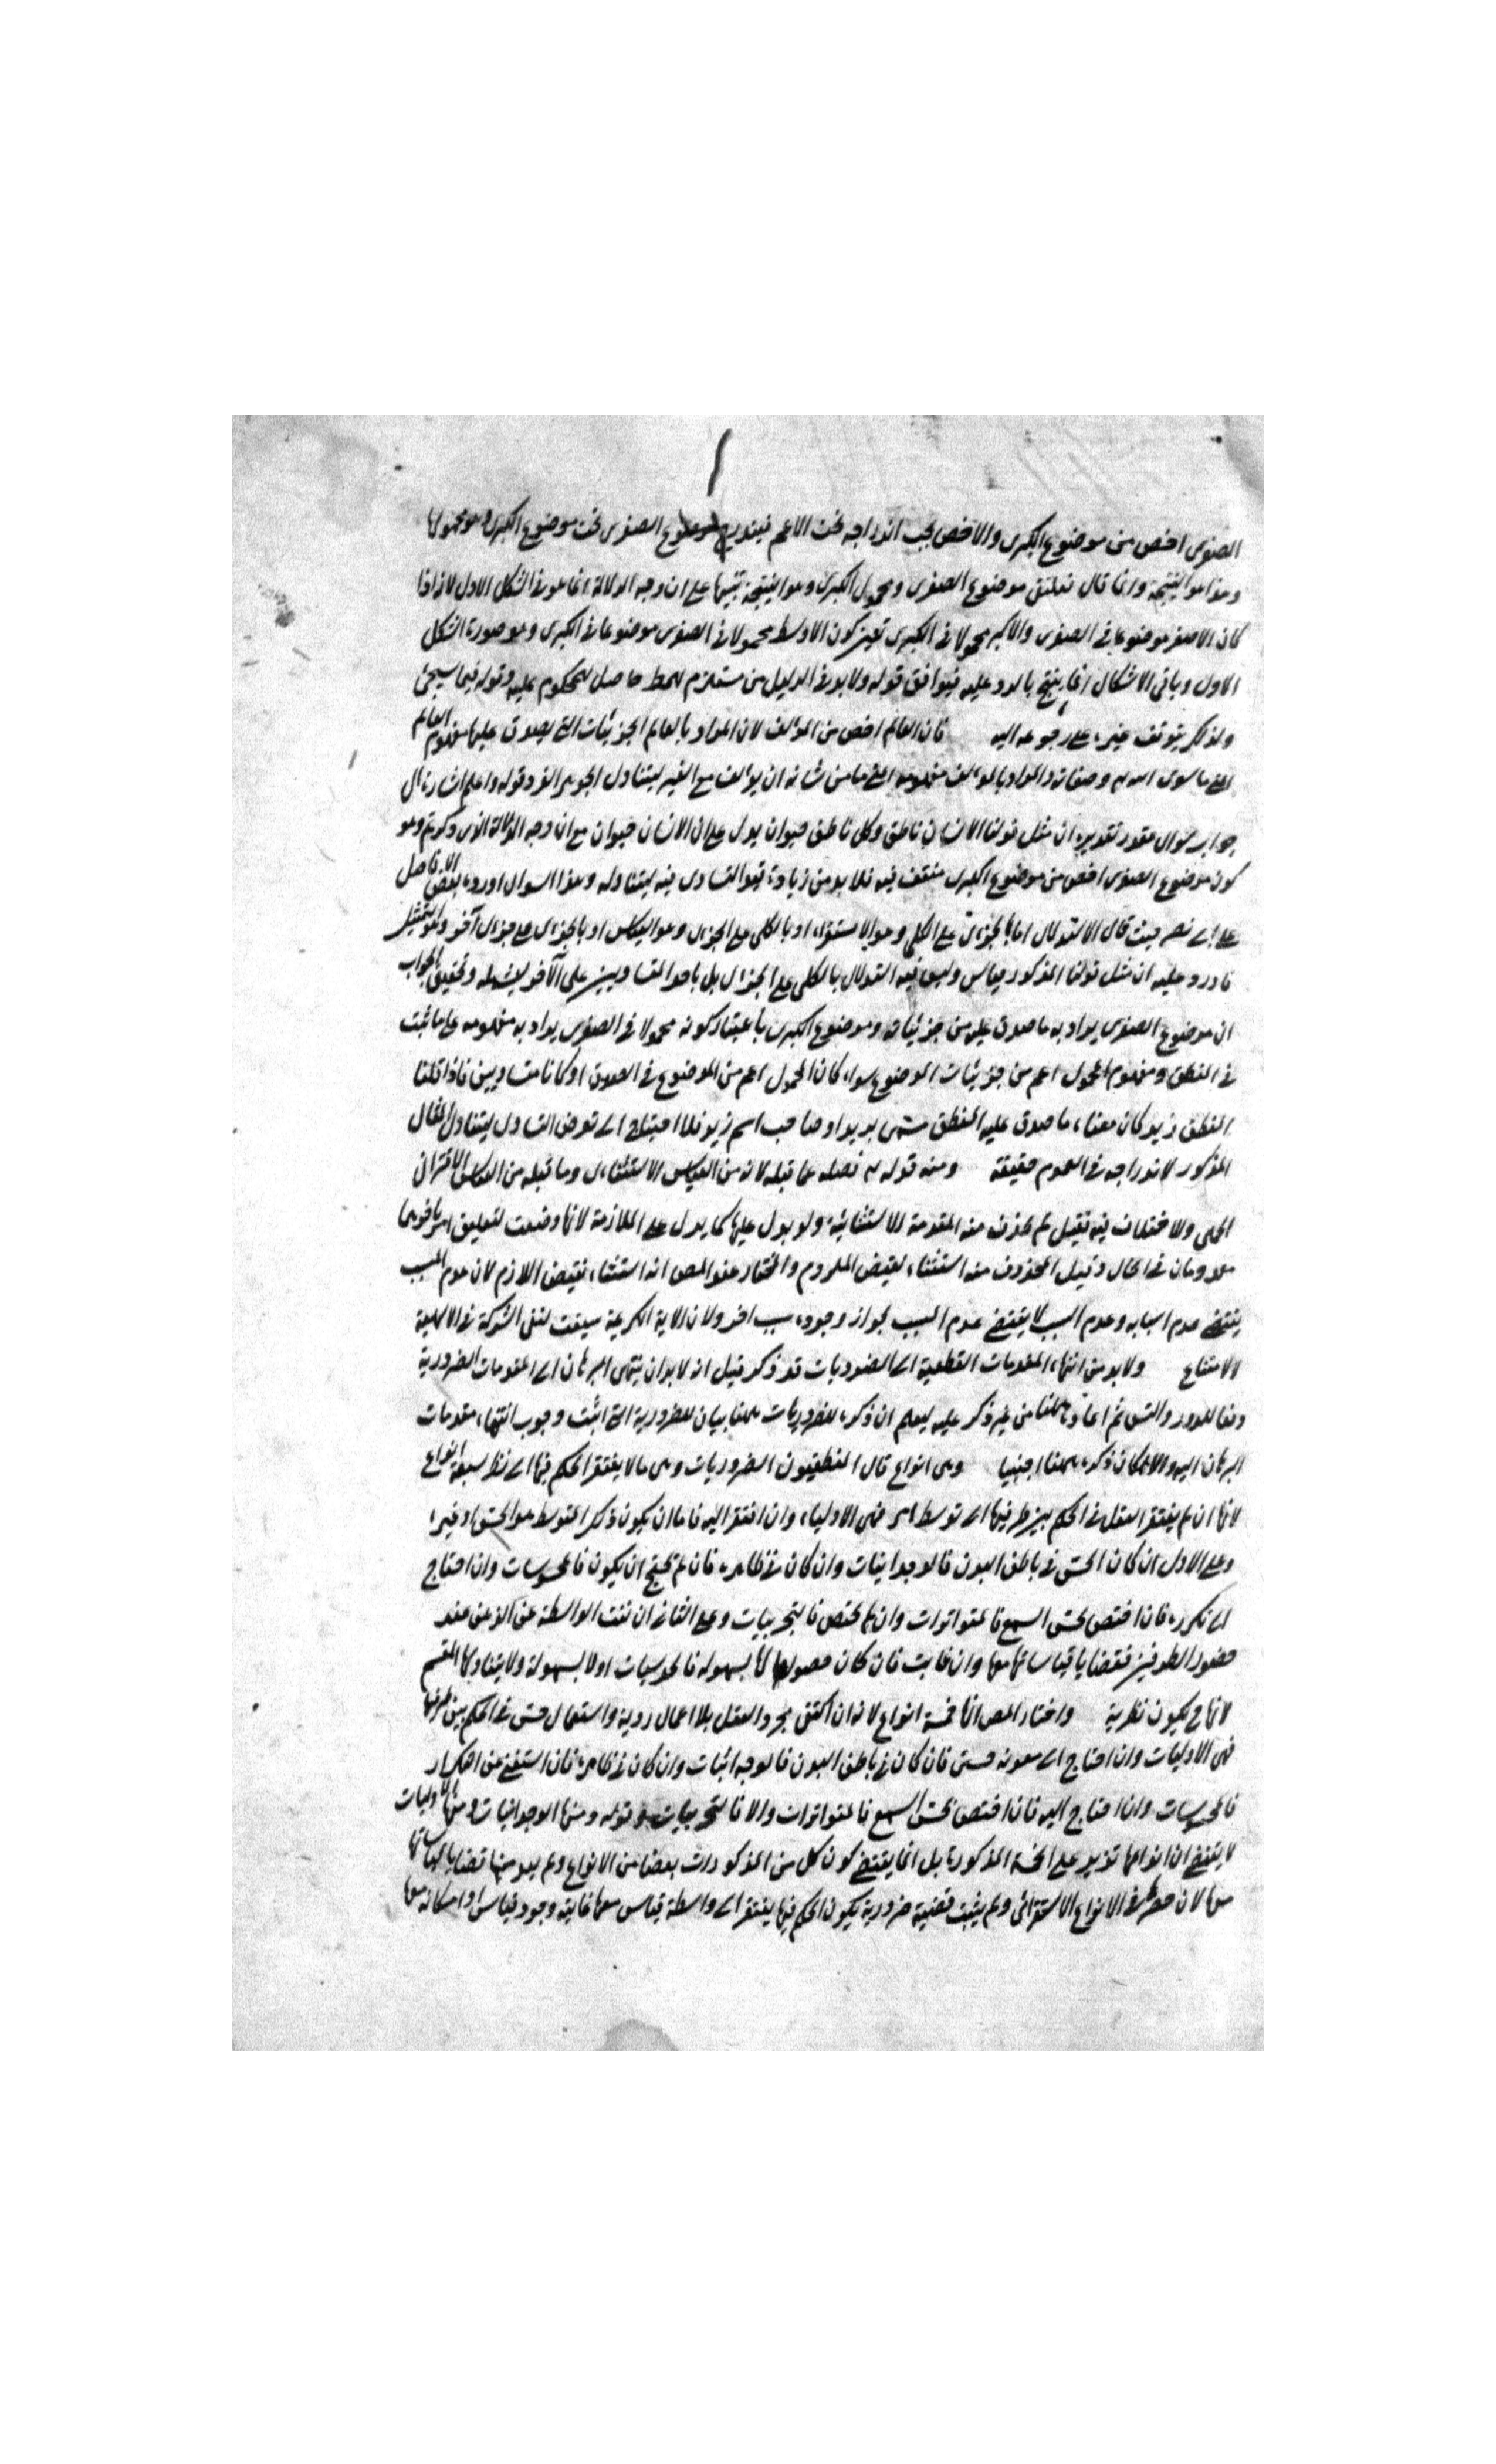 الصغرى اخص من موضوع الكبرى والاخص يجب اندراجه تحت الاعم فيندرج موضوع الصغرى تحت موضوع الكبرى و هو محمولها
وهذا هو النتيجة وانما قال فيلتقى موضوع الصغرى ومحمول الكبرى وهو النتيجة تنبيها على ان وجه الدلالة انما هو فى الشكل الاول لانه اذا
كان الاصغر موضوعا فى الصغرى والاكبر محمولا فى الكبرى تعين كون الاوسط محمولا فى الصغرى موضوعا فى الكبرى وهو صورة الشكل
الاول وباقى الاشكال انما ينتج بالرد عليه فيوافق قوله ولا بد فى الدليل من مستلزم للمط حاصل للمحكوم عليه وقوله فيما سيجئ
ولذلك يتوقف غيره على رجوعه اليه فان العالم اخص من المؤلف لان المراد بالعالم الجزئيات التى يصدق عليها مفهوم العالم
اعنى ما سوى الله وصفاته والمراد بالمؤلف مفهومه اعنى ما من شانه ان يؤلف مع الغير ليتناول الجوهر الفرد قوله واعلم اشارة الى
جواب سؤال مقدر تقديره ان مثل قولنا الانسان ناطق وكل ناطق حيوان يدل على ان الانسان حيوان مع ان وجه الدلالة الذى ذكرتم وهو
كون موضوع الصغرى اخص من موضوع الكبرى منتف فيه فلا بد من زيادة قيد التساوى فيه ليتناوله وهذا السؤال اورده بعض الافاضل
على ابى نصر حيث قال الاستدلال اما بالجزئى على الكلى وهو الاستقراء او بالكلى على الجزئى وهو القياس او بالجزئى على جزئى آخر وهو التمثيل
فاورد عليه ان مثل قولنا المذكور قياس وليس فيه استدلال بالكلى على الجزئى بل باحد المتساويين على الآخر ليشمله وتحقيق الجواب
ان موضوع الصغرى يراد به ما صدق عليه من جزئيات وموضوع الكبرى باعتبار كونه محمولا فى الصغرى يراد به مفهومه على ما ثبت
فى المنطق ومفهوم المحمول اعم من جزئيات الموضوع سواء كان المحمول اعم من الموضوع فى الصدق او كانا متساويين فاذا قلنا
المنطق زيد كان معناه ما صدق عليه المنطق مسمى بزيد او صاحب اسم زيد فلا احتياج الى تعرض التساوى ليتناول المثال
المذكور لاندراجه فى العموم حقيقة ومنه قوله فصله عما قبله لانه من القياس الاستثنائى وما قبله من القياس الاقترانى
الحملى ولاختلاف فيه فقيل لم يحذف منه المقدمة الاستثنائية ولو يدل عليها كما يدل على الملازمة لانها وضعت لتعليق امر باخر هما
معدومان فى الحال وقيل المحذوف منه استثناء نقيض الملزوم والمختار عند المص انه استثناء نقيض اللازم لان عدم المسبب
يقتضى عدم اسبابه وعدم السبب لا يقتضى عدم المسبب لجواز وجوده بسبب اخر ولان الاية الكريمة سيقت لنفى الشركة فى الالهية
للامتناع ولا بد من انتهاء المقدمات القطعية الى الضروريات قد ذكر قبل انه لا بد ان ينتهى البرهان الى المقدمات الضرورية
دفعا للدور والتس ثم اعاد هاهنا من غير ذكر عليه ليعلم ان ذكره للضروريات ههنا بيان للضرورية التى اثبت وجوب انتهاء مقدمات
البرهان اليه والا لكان ذكره ههنا اجنبيا وهى انواع قال المنطقيون الضروريات وهى ما لا يفتقر الحكم فيها الى نظر سبعة انواع
لانها ان لم يفتقر العقل فى الحكم بين طرفيها الى توسط امر فهى الاوليات وان افتقر اليه فاما ان يكون ذلك المتوسط هو الحس او غيره
وعلى الاول ان كان الحس فى باطن البدن فالوجدانيات وان كان فى ظاهره فان لم يحتج ان يكون فالمحسوسات وان احتاج
الى تكرره فان اختص بحس السمع فالمتواترات وان لم يختص فالتجربيات وعلى الثانى ان نفت الواسطة عن الذهن عند
حضور الطرفين فقضايا قياساتها معها وان غابت فان كان حصولها لها بسهولة فالحدسيات او لا بسهولة ولا يتناولها المقسم
لانها ح يكون نظرية واختار المص انها خمسة انواع لانه ان اكتفى بمجرد العقل بلا اعمال روية واستعمال حس فى الحكم بين طرفيها
فهى الاوليات وان احتاج الى معونة حس فان كان فى باطن البدن فالوجدانيات وان كان فى ظاهره فان استغنى عن التكرار
فالمحسوسات وان احتاج اليه فان اختص بحس السمع فالمتواترات والا فالتجربيات وقوله ومنها الوجدانيات ومنها الاوليات
لا يقتضى ان انواعها تزيد على الخمسة المذكورة بل انما يقتضى كون كل من المذكورات بعضا من الانواع ولم يعد منها قضايا قياساتها
معها لان حصرها فى الانواع الاستقرائى ولم يثبت قضية ضرورية يكون الحكم فيها يفتقر الى واسطة قياس معها غايته وجود قياس او امكانه معها